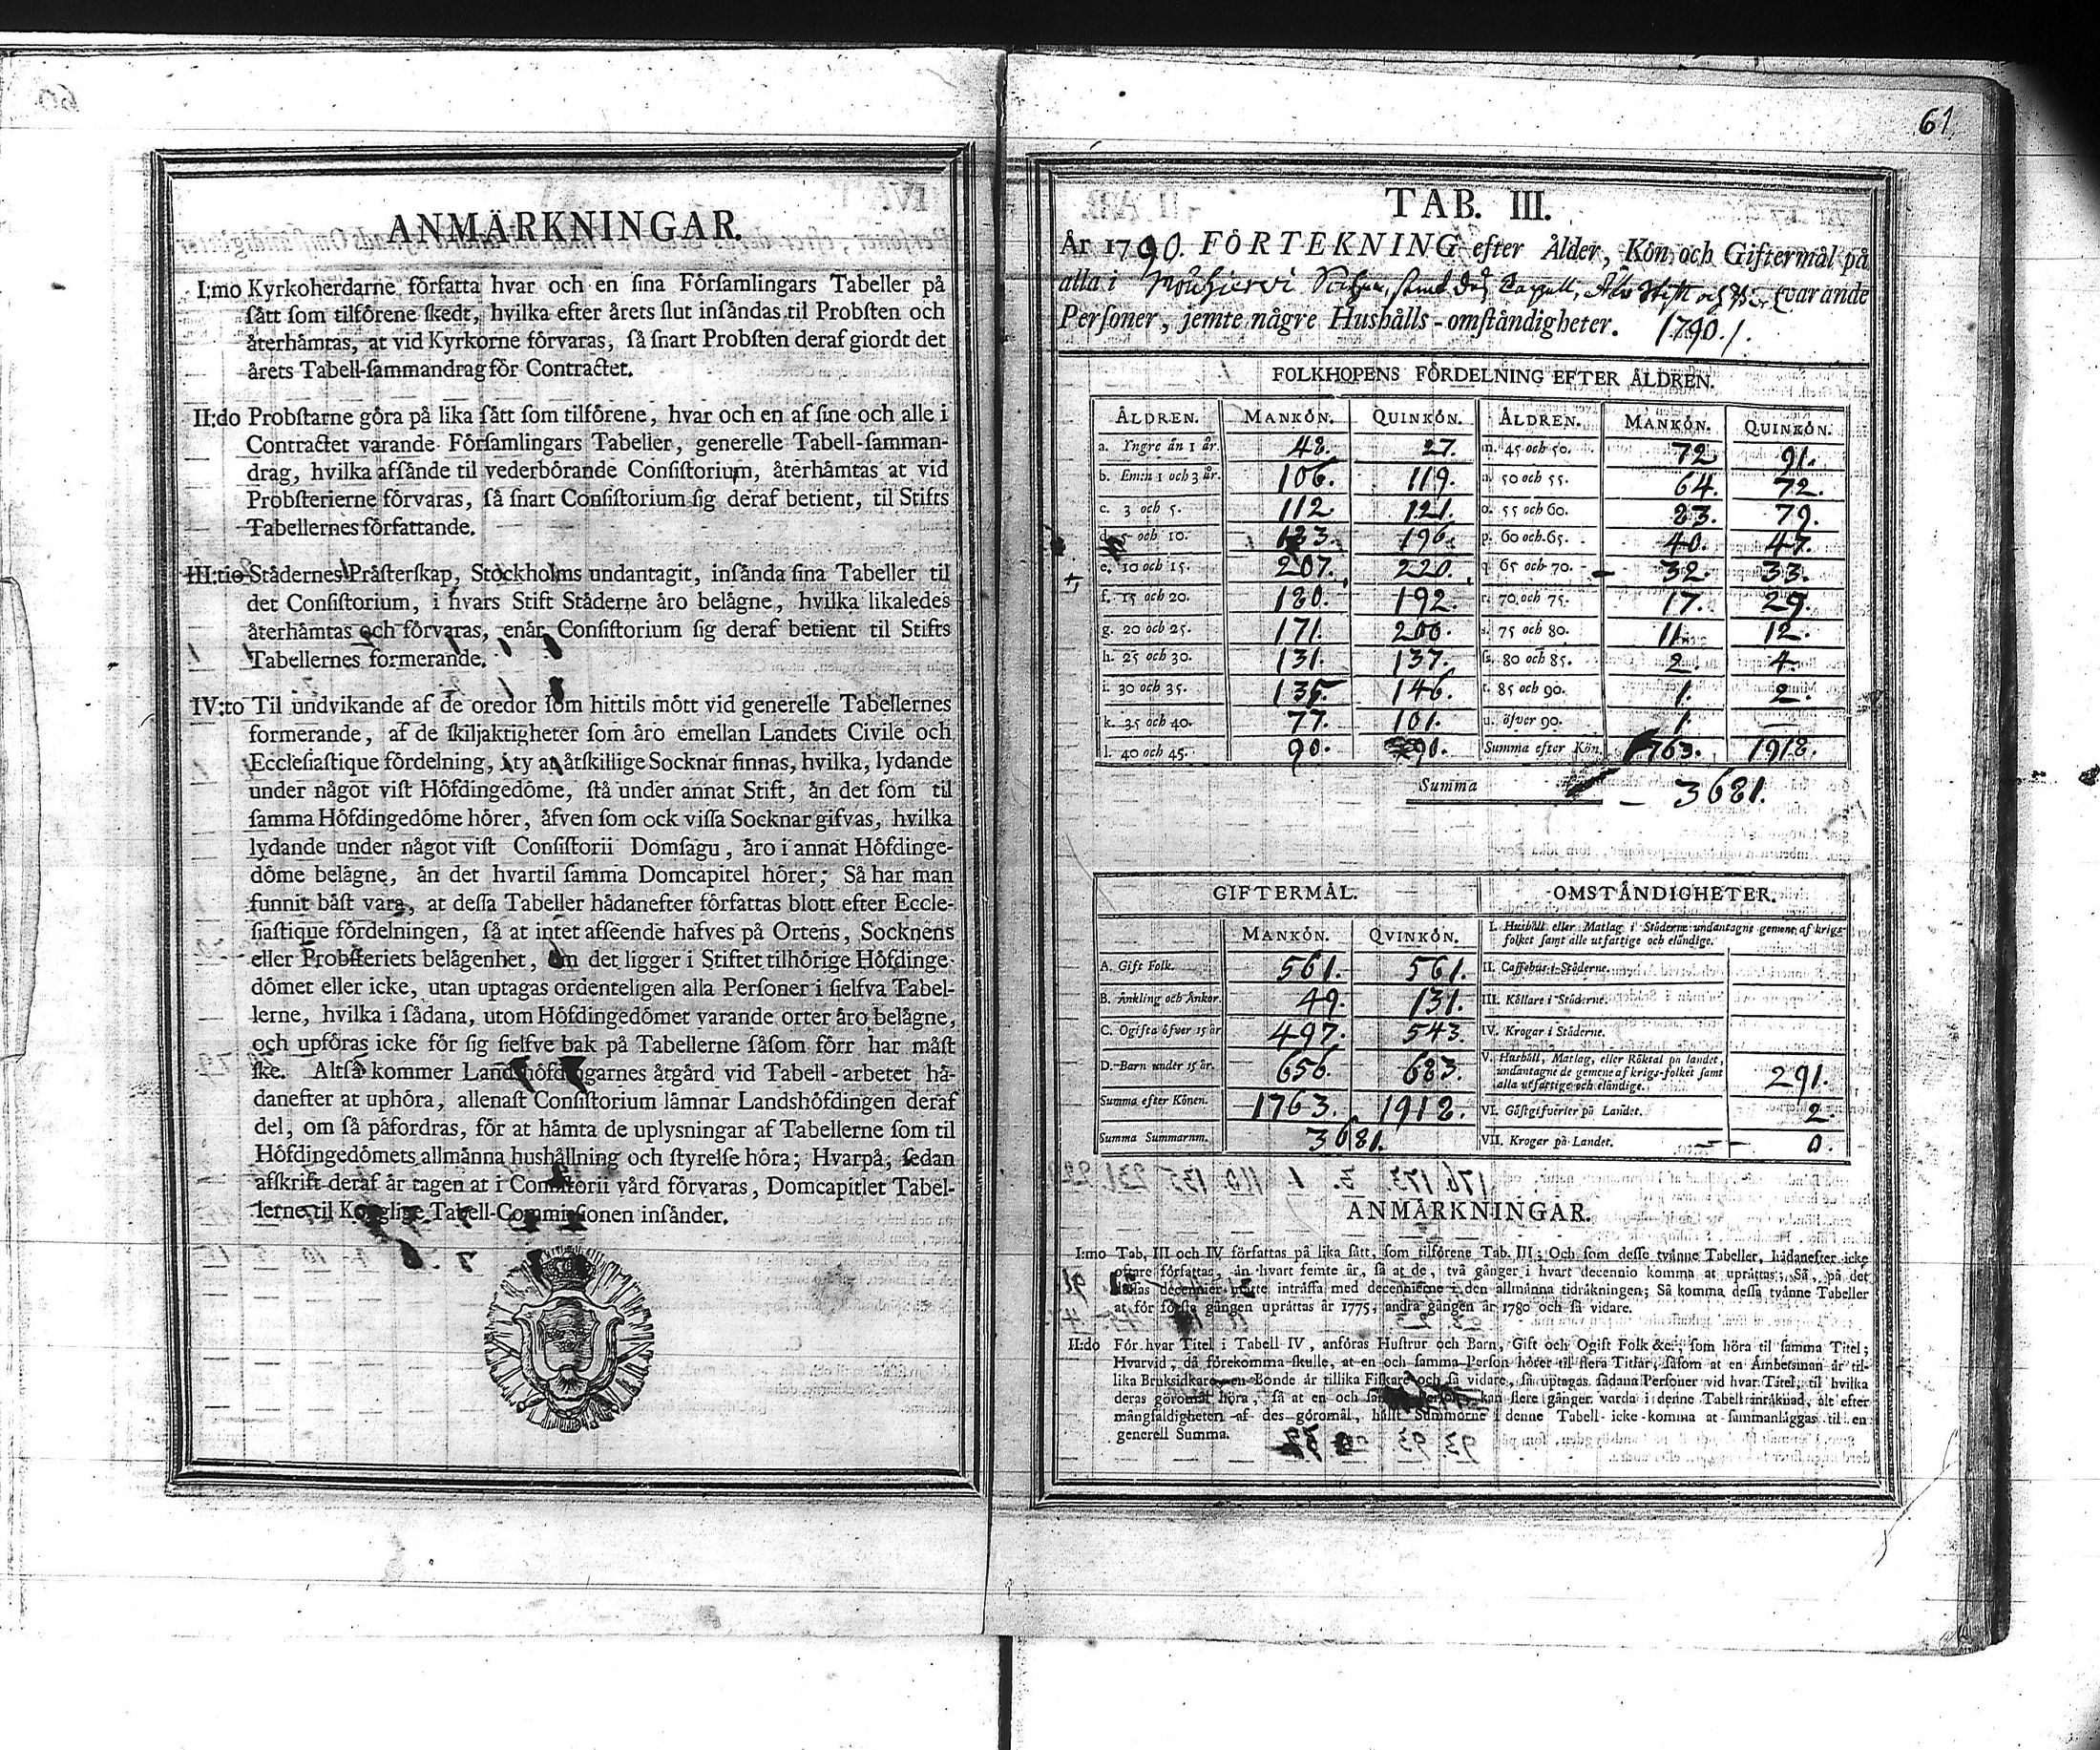 61.
ANMÄRKNINGAR.
I:mo Kyrkoherdarne författa hvar och en ſina Förſamlingars Tabeller på
ſått ſom tilförene ſkedt, hvilka efter årets ſlut inſåndas til Probſten och
återhämtas, at vid Kyrkorne förvaras, ſå ſnart Probſten deraf giordt det
årets Tabell-ſammandrag för Contractet.
II:do Probſtarne göra på lika ſått ſom tilförene, hvar och en af ſine och alle i
Contractet varande Förſamlingars Tabeller, generelle Tabell-ſamman-
drag, hvilka afſånde til vederbörande Conſiſtorium, återhämtas at vid
Probſterierne förvaras, ſå ſnart Conſiſtorium ſig deraf betient, til Stifts
Tabellernes författande.
III:tio Städernes Präſterſkap, Stockholms undantagit, inſånda ſina Tabeller til
det Conſiſtorium, i hvars Stift Städerne äro belägne, hvilka likaledes
återhämtas och förvaras, enär Conſiſtorium ſig deraf betient til Stifts
Tabellernes formerande.
IV:to Til undvikande af de oredor ſom hittils mött vid generelle Tabellernes
formerande, af de ſkiljaktigheter ſom äro emellan Landets Civile och
Eccleſiaſtique fördelning, ity at åtſkillige Socknar finnas, hvilka, lydande
under något viſt Höfdingedöme, ſtå under annat Stift, än det ſom til
ſamma Höfdingedöme hörer, äfven ſom ock viſſa Socknar gifvas, hvilka
lydande under något viſt Conſiſtorii Domſagu, äro i annat Höfdinge-
döme belägne, än det hvartil ſamma Domcapitel hörer; Så har man
funnit bäſt vara, at deſſa Tabeller hädanefter författas blott efter Eccle-
ſiaſtique fördelningen, ſå at intet afſeende hafves på Ortens, Socknens
eller Probſteriets belägenhet, om det ligger i Stiftet tilhörige Höfdinge-
dömet eller icke, utan uptagas ordenteligen alla Perſoner i ſielfva Tabel-
lerne, hvilka i ſådana, utom Höfdingedömet varande orter äro belägne,
och upföras icke för ſig ſielfve bak på Tabellerne ſåſom förr har måſt
ſke. Altſå kommer Landshöfdingarnes åtgård vid Tabell-arbetet hä-
danefter at uphöra, allenaſt Conſiſtorium lämnar Landshöfdingen deraf
del, om ſå påfordras, för at hämta de uplysningar af Tabellerne ſom til
Höfdingedömets allmänna hushållning och ſtyrelſe höra; Hvarpå, ſedan
afſkrift deraf är tagen at i Conſiſtorii vård förvaras, Domcapitlet Tabel-
lerne til Kongliga Tabell-Commiſſionen inſänder.
TAB. III.
År 1790. FÖRTEKNING efter Ålder, Kön och Giftermål på
alla i Socken, varande
Perſoner, jemte någre Hushålls-omſtändigheter. 1790.
FOLKHOPENS FÖRDELNING EFTER ÅLDREN.
ÅLDREN. MANKÖN. QUINKÖN. ÅLDREN. MANKÖN. QUINKÖN.
a. Yngre än 1 år. 48. 27. m. 45 och 50. 72 91.
b. Em:n 1 och 3 år. 106. 119. n. 50 och 55. 64. 72.
c. 3 och 5. 112 121. o. 55 och 60. 83. 79.
d. 5 och 10. 183. 196. p. 60 och 65. 40. 47.
e. 10 och 15. 207. 220. q. 65 och 70. 32. 33.
f. 15 och 20. 180. 192. r. 70 och 75. 17. 29.
g. 20 och 25. 171. 200. s. 75 och 80. 11. 12.
h. 25 och 30. 131. 137. ſz. 80 och 85. 2. 4.
i. 30 och 35. 135. 146. t. 85 och 90. 1. 2.
k. 35 och 40. 77. 101. u. öfver 90. 1. —
l. 40 och 45. 90. 90. Summa efter Kön. 1763. 1918.
Summa — 3681.
GIFTERMÅL. OMSTÄNDIGHETER.
MANKÖN. QVINKÖN.
I. Hushåll eller Matlag i Städerne undantagne gemene af krigs-
folket ſamt alle utfattige och eländige.
A. Gift Folk. 561. 561. II. Caffehus i Städerne.
B. Änkling och Änkor. 49. 131. III. Källare i Städerne.
C. Ogifta öfver 15 år 497. 543. IV. Krogar i Städerne.
D. Barn under 15 år. 656. 683. V. Hushåll, Matlag, eller Röktal på landet,
undantagne de gemene af krigs-folket ſamt
alla utfattige och eländige. 291.
Summa efter Könen. 1763. 1918. VI. Gäſtgifverier på Landet. 2.
Summa Summarum. 3681. VII. Krogar på Landet. 0.
ANMÄRKNINGAR.
I:mo Tab. III och IV författas på lika ſätt, ſom tilförene Tab. III; Och ſom deſſe tvänne Tabeller, hädanefter icke
oftare författas, än hvart femte år, ſå at de, två gånger i hvart decennio komma at uprättas; Så, på det
decennier måtte inträffa med decennierne i den allmänna tidräkningen; Så komma deſſa tvänne Tabeller
at för förſta gången uprättas år 1775, andra gången år 1780 och ſå vidare.
II:do För hvar Titel i Tabell IV, anföras Huſtrur och Barn, Gift och Ogift Folk &c. ſom höra til ſamma Titel;
Hvarvid, då förekomma ſkulle, at en och ſamma Perſon hörer til flera Titlar, ſåſom at en Ämbetsman är til-
lika Bruksidkare, en Bonde är tillika Fiſkare och ſå vidare, ſå uptagas ſådana Perſoner vid hvar Titel, til hvilka
deras göromål höra, ſå at en och ſamma Perſon kan flere gånger varda i denne Tabell inräknad, alt efter
mångfaldigheten af des göromål, hälſt Summorne i denne Tabell icke komma at ſammanläggas til en
generell Summa.